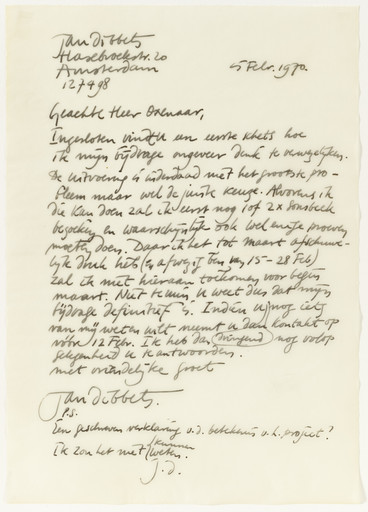 Jan Dibbets
Hasebroekstr. 20
Amsterdam
127498
5 Febr. 1970.
Geachte Heer Oxenaar,
Ingesloten vindt u een eerste schets hoe
ik mijn bijdrage ongeveer denk te verwezelijken.
De uitvoering is uiteraard niet het grootste pro-
bleem maar wel de juiste keuze. Alvorens ik
die kan doen zal ik eerst nog 1 of 2x Sonsbeek
bezoeken en waarschijnlijk ook wel enige proeven
moeten doen. Daar ik het tot maart afschuwe-
lijk druk heb (en afwezig ben van 15 - 28 Feb)
zal ik niet hieraan toekomen voor begin
maart. Niettemin, u weet dus dat mijn
bijdrage definitief is. Indien u nog iets
van mij weten wilt neemt u dan kontakt op
vóór 12 Febr. Ik heb dan dringend nog volop
gelegenheid u te antwoorden.
met vriendelijke groet
Jan Dibbets.
P.S.
Een geschreven verklaring v.d. betekenis v.h. project?
Ik zou het niet kunnen weten.
J.D.